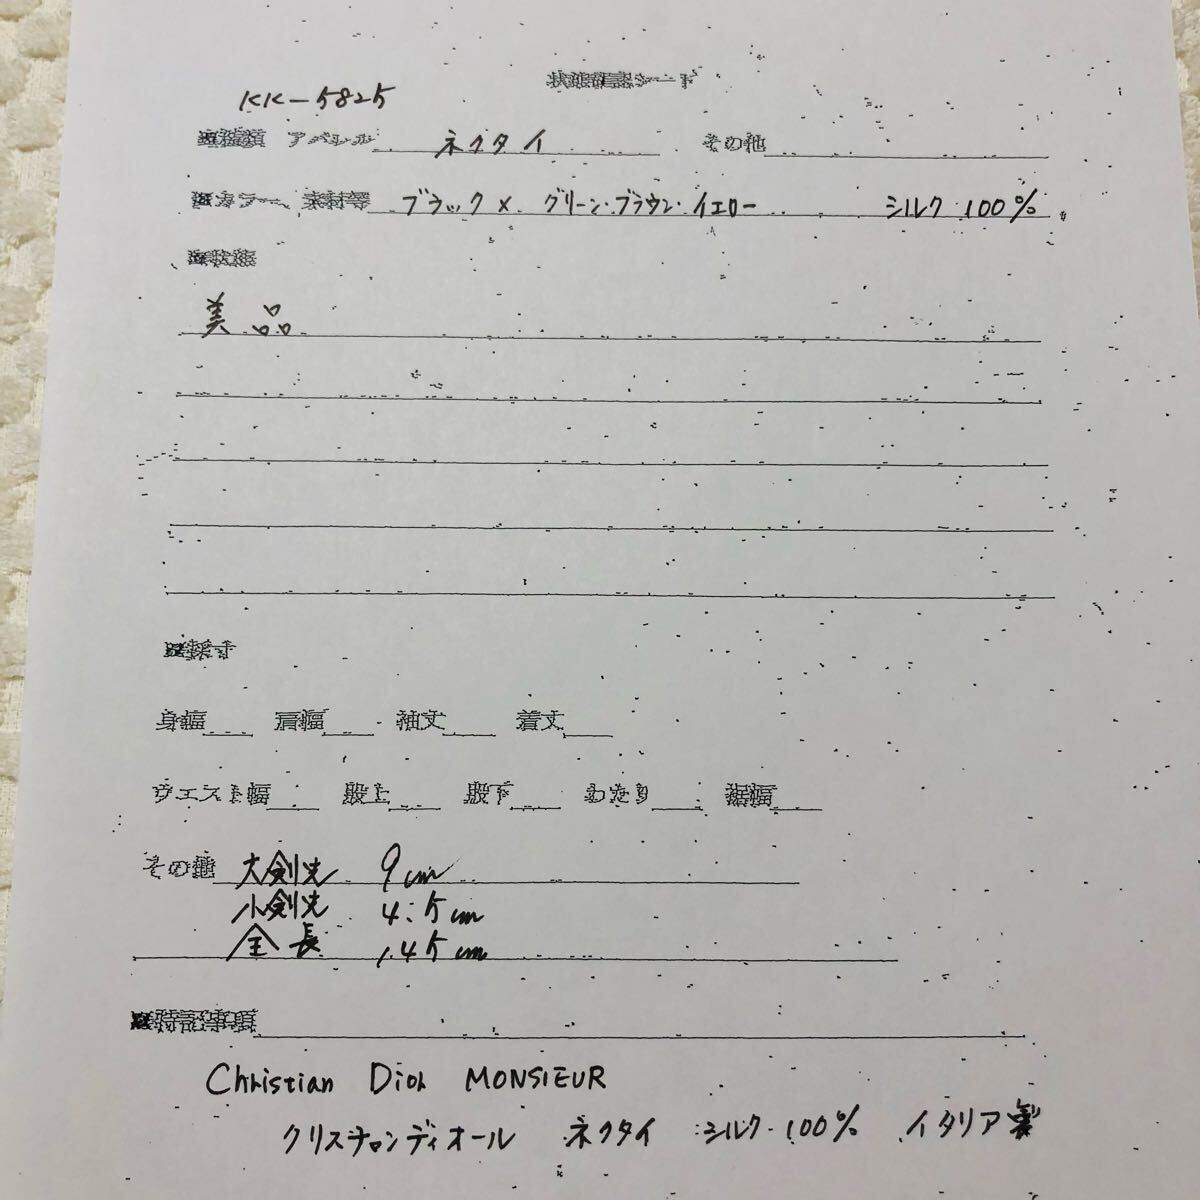 状態確認シート
KK-5825
■種類 アパレル ネクタイ その他
■カラー、素材等 ブラック×グリーン・ブラウン・イエロー シルク100%
■状態
美品
■採寸
身幅 肩幅 袖丈 着丈
ウエスト幅 股上 股下 わたり 裾幅
その他 大剣先 9cm
小剣先 4.5cm
全長 145cm
■特記事項
Christian Dior MONSIEUR
クリスチャンディオール ネクタイ シルク100% イタリア製